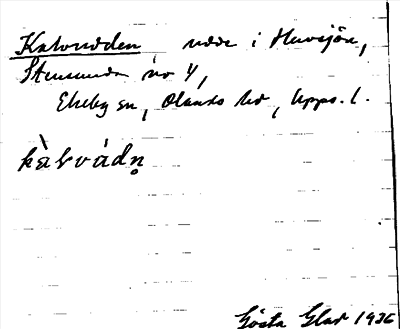 Kalvudden udde i Havsjön,
Stensunda nr 4,
Ekeby sn, Olands hd, Upps. l.
Gösta Glad 1936